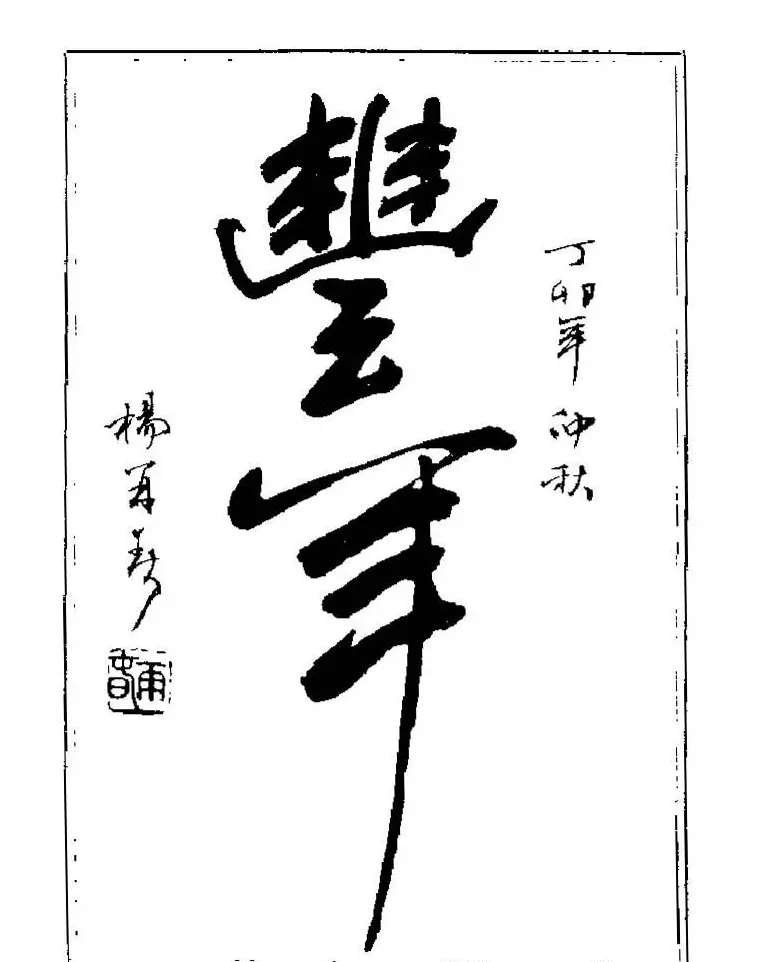 丁卯年 仲秋
豐年
楊再春
再春